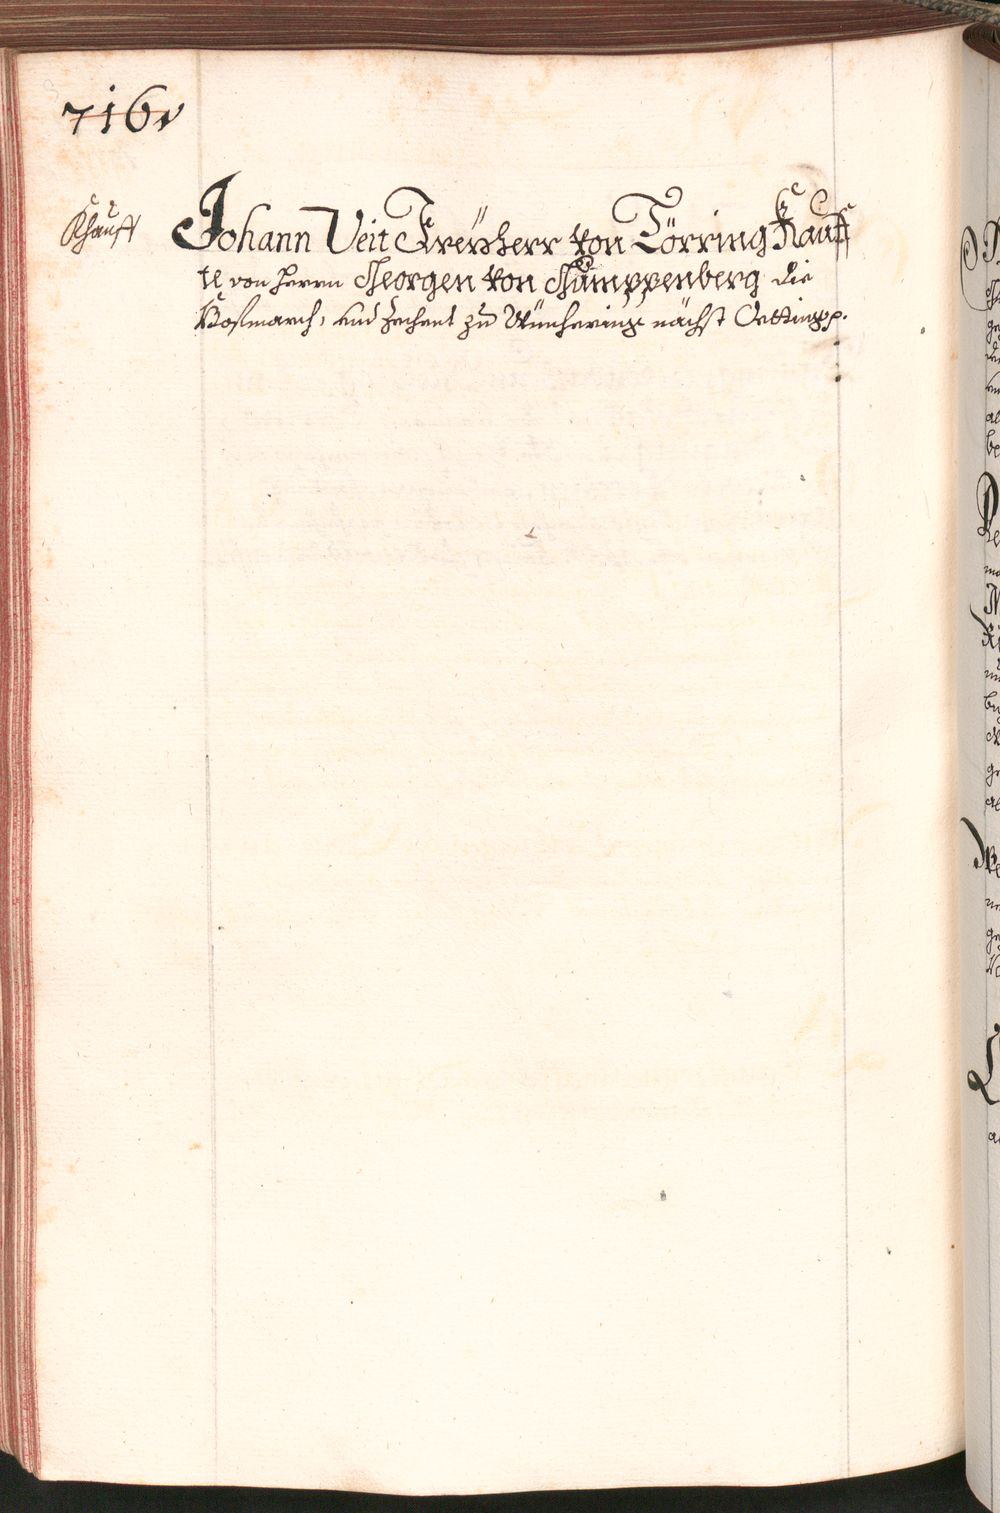 716v
Khauff
Johann Veit Freyherr von Törring Kauff
te von Herrn Georgen von Gumppenberg die
Hofmarch, und Zechent zu Münchering nächst Oetting p.